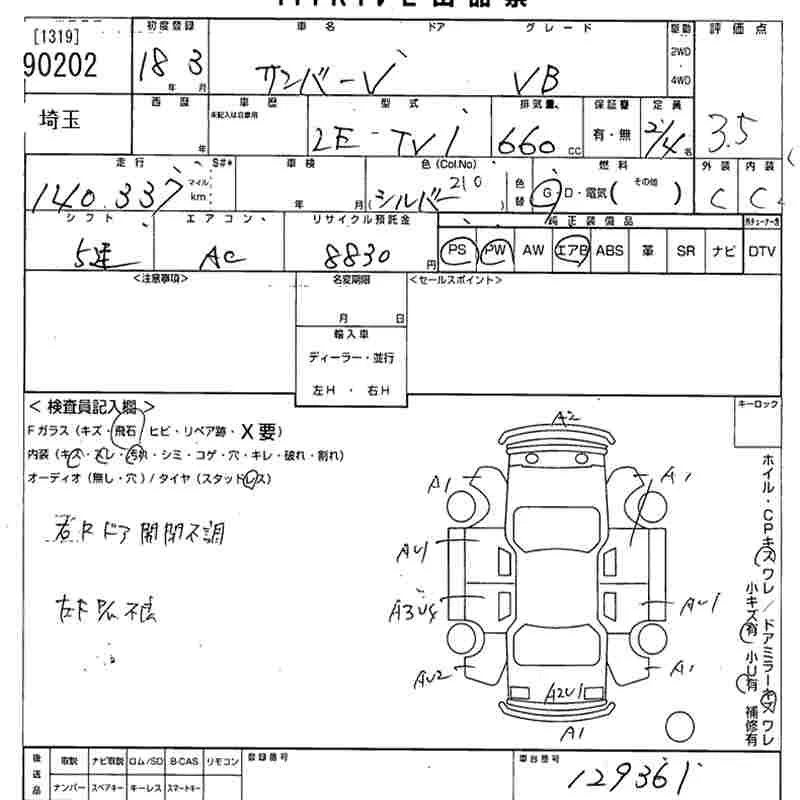 [1319]
90202
埼玉
初度登録
18 年 3 月
車名 ドア グレード
サンバーV VB
駆動
2WD
・
4WD
評価点
3.5
西暦
年
車歴
未記入は自家用
型式
LE-TV1
排気量
660 cc
保証書
有・無
定員
2/4 名
走行
140.337
マイル
km
S#*
車検
年 月
色(Col.No)
(シルバー 210)
色替
燃料
G・D・電気( その他 )
外装
C
内装
C
シフト
5速
エアコン
AC
リサイクル預託金
8830 円
純正装備品
PS PW AW エアB ABS 革 SR ナビ DTV
<注意事項>
名変期限
月 日
<セールスポイント>
輸入車
ディーラー・並行
左H ・ 右H
<検査員記入欄>
Fガラス(キズ・飛石/ヒビ・リペア跡・X要)
内装(キズ・ズレ・汚れ・シミ・コゲ・穴・キレ・破れ・割れ)
オーディオ(無し・穴)/タイヤ(スタッドレス)
右Rドア開閉不調
キーロック
ホイル・CPキズワレ/ドアミラーキズワレ
小キズ有 小U有 補修有
A2
A1
A1
AU1
A3U4
AU1
AU2
A1
A2U1
A1
後送品
取説 ナビ取説 ロム/SD B-CAS リモコン
ナンバー スペアキー キーレス スマートキー
登録番号
車台番号
129361